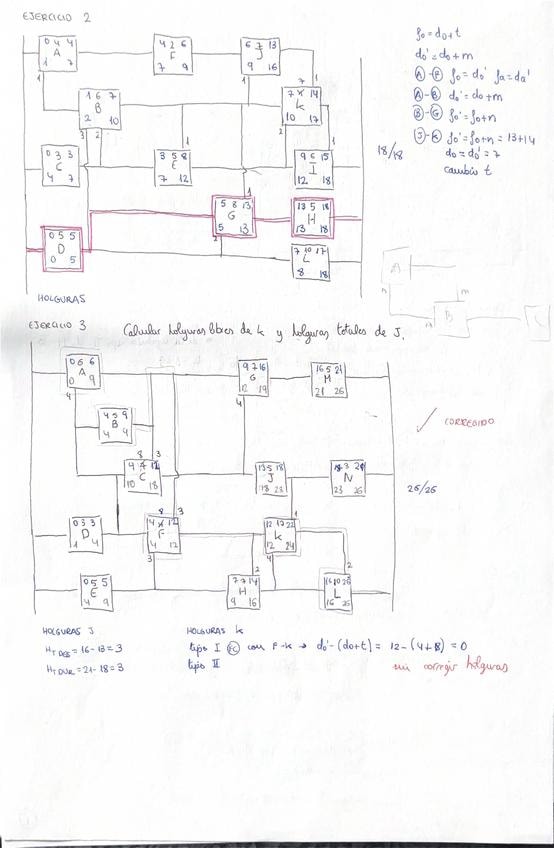 EJERCICIO 2
0 4 4
A
1 7
4 2 6
F
7 9
6 7 13
J
9 16
1
1
7
1 6 7
B
2 10
7 14
K
10 17
3 2
1
2
1
0 3 3
C
4 7
3 5 8
E
7 12
9 6 15
I
12 18
18/18
5 8 13
G
5 13
1
13 5 18
H
13 18
0 5 5
D
0 5
2
7 10 17
L
8 18
fo = do + t
do' = do + m
A - F fo = do' fa = da'
A - B do' = do + m
B - G fo' = fo + n
J - K fo' = fo + n = 13+14
do = do' = 7
cambio t
A
n
m
B
HOLGURAS
EJERCICIO 3
Calcular holguras libres de k y holguras totales de J.
0 6 6
A
0 9
4
9 7 16
G
12 19
4
16 5 21
M
21 26
4 5 9
B
4 9
8 3
C
10 18
13 5 18
J
18 23
N
23 26
CORREGIDO
26/26
0 3 3
D
1 4
8
3
F
4 12
3
12 22
K
12 24
1
4
0 5 5
E
4 9
7 7 14
H
9 16
2
16 10 26
L
16 26
2
HOLGURAS J
HT DES = 16-13 = 3
= 21-18 = 3
HOLGURAS K
tipo I FC con F-K → do' - (do+t) = 12 - (4+8) = 0
tipo III
sin corregir holguras